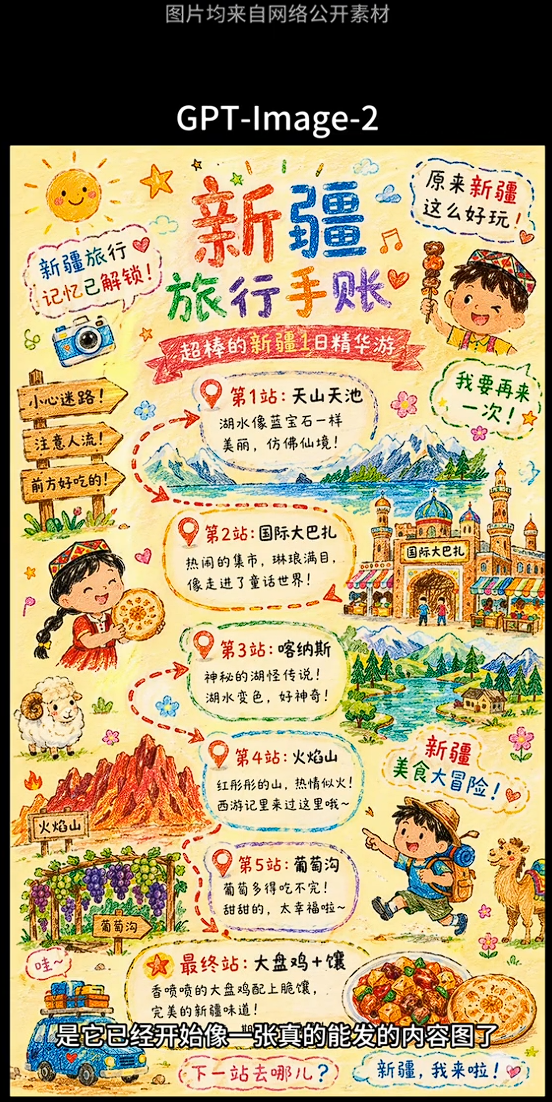 图片均来自网络公开素材
GPT-Image-2
新疆
旅行手账
超棒的新疆1日精华游
原来新疆
这么好玩！
新疆旅行
记忆已解锁！
我要再来
一次！
小心迷路！
注意人流！
前方好吃的！
第1站：天山天池
湖水像蓝宝石一样
美丽，仿佛仙境！
第2站：国际大巴扎
热闹的集市，琳琅满目，
像走进了童话世界！
国际大巴扎
第3站：喀纳斯
神秘的湖怪传说！
湖水变色，好神奇！
第4站：火焰山
红彤彤的山，热情似火！
西游记里来过这里哦~
火焰山
新疆
美食大冒险！
第5站：葡萄沟
葡萄多得吃不完！
甜甜的，太幸福啦~
葡萄沟
最终站：大盘鸡+馕
香喷喷的大盘鸡配上脆馕，
完美的新疆味道！
哇~
是它已经开始像一张真的能发的内容图了
下一站去哪儿？
新疆，我来啦！